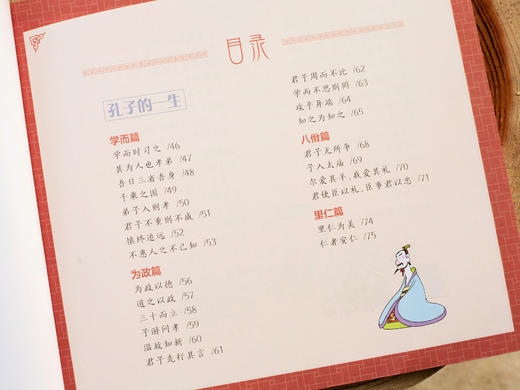 目录
孔子的一生
学而篇
学而时习之 /46
其为人也孝弟 /47
吾日三省吾身 /48
千乘之国 /49
弟子入则孝 /50
君子不重则不威 /51
慎终追远 /52
不患人之不己知 /53
为政篇
为政以德 /56
道之以政 /57
三十而立 /58
子游问孝 /59
温故知新 /60
君子先行其言 /61
君子周而不比 /62
学而不思则罔 /63
攻乎异端 /64
知之为知之 /65
八佾篇
君子无所争 /68
子入太庙 /69
尔爱其羊,我爱其礼 /70
君使臣以礼,臣事君以忠 /71
里仁篇
里仁为美 /74
仁者安仁 /75